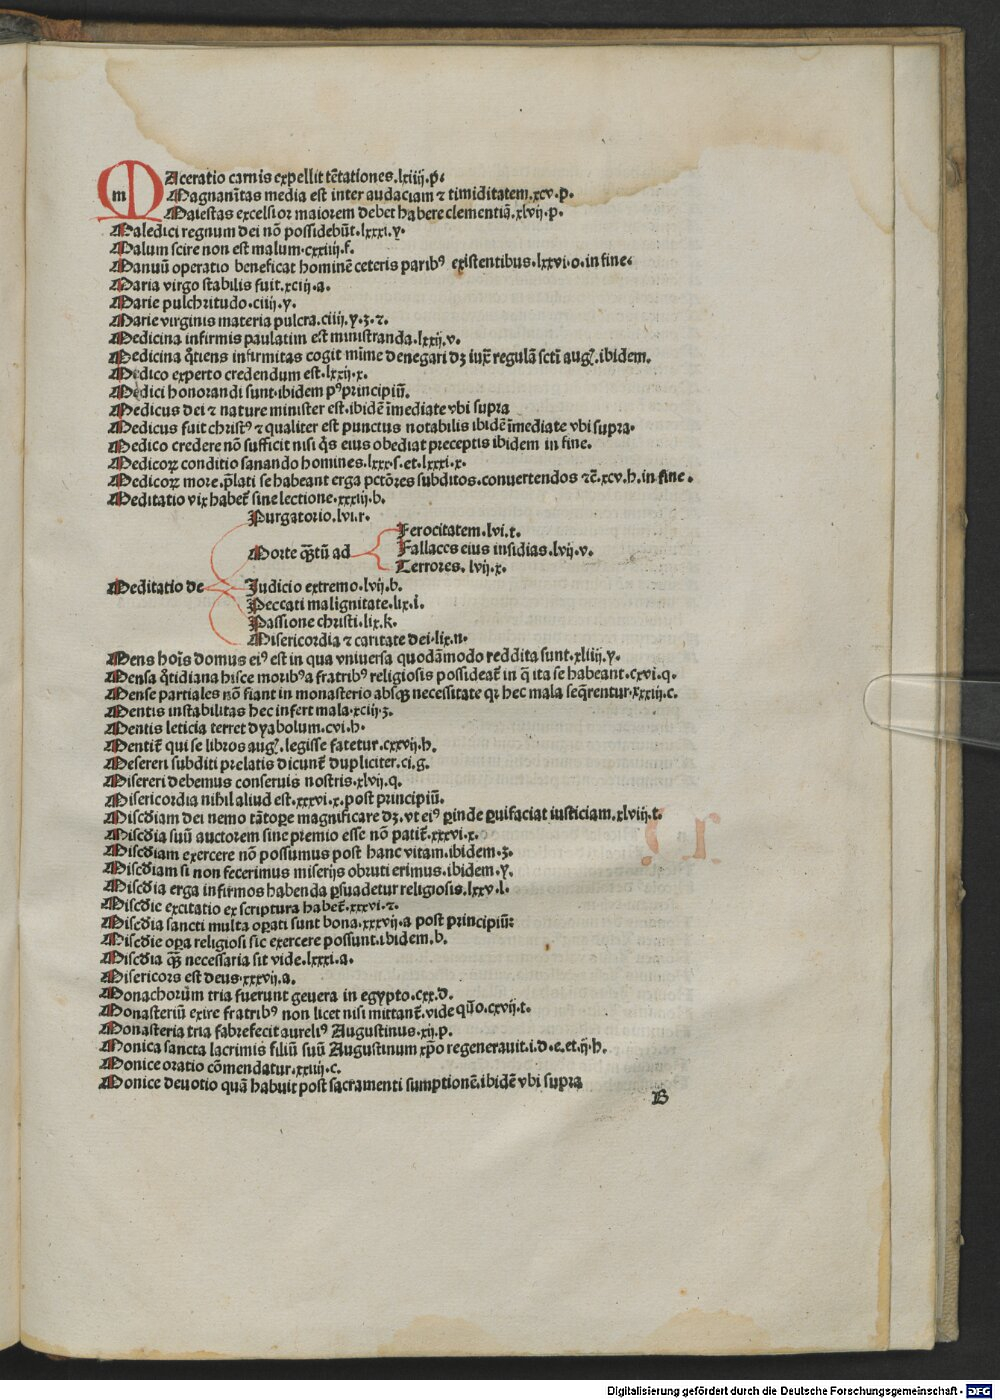 MAceratio carnis expellit tētationes.lxiiij.p.
m Magnanītas media est inter audaciam ⁊ timiditatem.xcv.p.
Maiestas excelsior maiorem debet habere clementiā.xlvij.p.
Maledici regnum dei nō possidebūt.lxxxi.y.
Malum scire non est malum.cxxiiij.f.
Manuū operatio beneficat hominē ceteris paribꝰ existentibus.lxxvi.o.in fine.
Maria virgo stabilis fuit.xcij.a.
Marie pulchritudo.ciiij.y.
Marie virginis materia pulcra.ciiij.y.ʒ.⁊.
Medicina infirmis paulatim est ministranda.lxxij.v.
Medicina q̄tiens infirmitas cogit mīme denegari dʒ iux̄ regulā scti augꝭ.ibidem.
Medico experto credendum est.lxxij.x.
Medici honorandi sunt.ibidem pꝰprincipiū.
Medicus dei ⁊ nature minister est.ibidē īmediate vbi supra
Medicus fuit christꝰ ⁊ qualiter est punctus notabilis ibidē īmediate vbi supra.
Medico credere nō sufficit nisi q̄s eius obediat preceptis ibidem in fine.
Medicoꝝ conditio sanando homines.lxxx.s.et.lxxxi.x.
Medicoꝝ more.p̄lati se habeant erga pctōres subditos.convertendos ⁊c̄.xcv.h.in fine.
Meditatio vix habet̄ sine lectione.xxxiij.b.
Purgatorio.lvi.r.
Ferocitatem.lvi.t.
Morte q̄tū ad Fallaces eius insidias.lvij.v.
Terrores. lvij.x.
Meditatio de Judicio extremo.lvij.b.
Peccati malignitate.lix.i.
Passione christi.lix.k.
Misericordia ⁊ caritate dei.lix.n.
Mens hoīs domus eiꝰ est in qua vniversa quodāmodo reddita sunt.xliiij.y.
Mensa q̄tidiana hisce moribꝰa fratribꝰ religiosis possideat̄ in q̄ ita se habeant.cxvi.q.
Mense partiales nō fiant in monasterio absqꝫ necessitate qꝛ hec mala seq̄rentur.xxxiij.c.
Mentis instabilitas hec infert mala.xciij.ʒ.
Mentis leticia terret dyabolum.cvi.h.
Mentit̄ qui se libros augꝭ.legisse fatetur.cxxvij.h.
Mesereri subditi prelatis dicunt̄ dupliciter.ci.g.
Misereri debemus conservis nostris.xlvij.q.
Misericordia nihil aliud est.xxxvi.x.post principiū.
Miscd̄iam dei nemo tātoꝑe magnificare dʒ.vt eiꝰ ꝑinde ꝑuifaciat iusticiam.xlviij.t.
Miscd̄ia suū auctorem sine premio esse nō patit̄.xxxvi.x.
Miscd̄iam exercere nō possumus post hanc vitam.ibidem.ʒ.
Miscd̄iam si non fecerimus miserijs obruti erimus.ibidem.y.
Miscd̄ia erga infirmos habenda ꝑsuadetur religiosis.lxxv.l.
Miscd̄ie excitatio ex scriptura habet̄.xxxvi.⁊.
Miscd̄ia sancti multa oꝑati sunt bona.xxxvij.a post principiū:
Miscd̄ie oꝑa religiosi sic exercere possunt.ibidem.b.
Miscd̄ia q̄ꝫ necessaria sit vide.lxxxi.a.
Misericors est deus.xxxvij.a.
Monachorūm tria fuerunt gevera in egypto.cxx.d.
Monasteriū exire fratribꝰ non licet nisi mittant̄.vide quīo.cxvij.t.
Monasteria tria fabrefecit aureliꝰ Augustinus.xij.p.
Monica sancta lacrimis filiū suū Augustinum xp̄o regeneravit.i.d.e.et.ij.h.
Monice oratio cōmendatur.xxiij.c.
Monice devotio quā habuit post sacramenti sumptionē.ibidē vbi supra
B
Digitalisierung gefördert durch die Deutsche Forschungsgemeinschaft - DFG